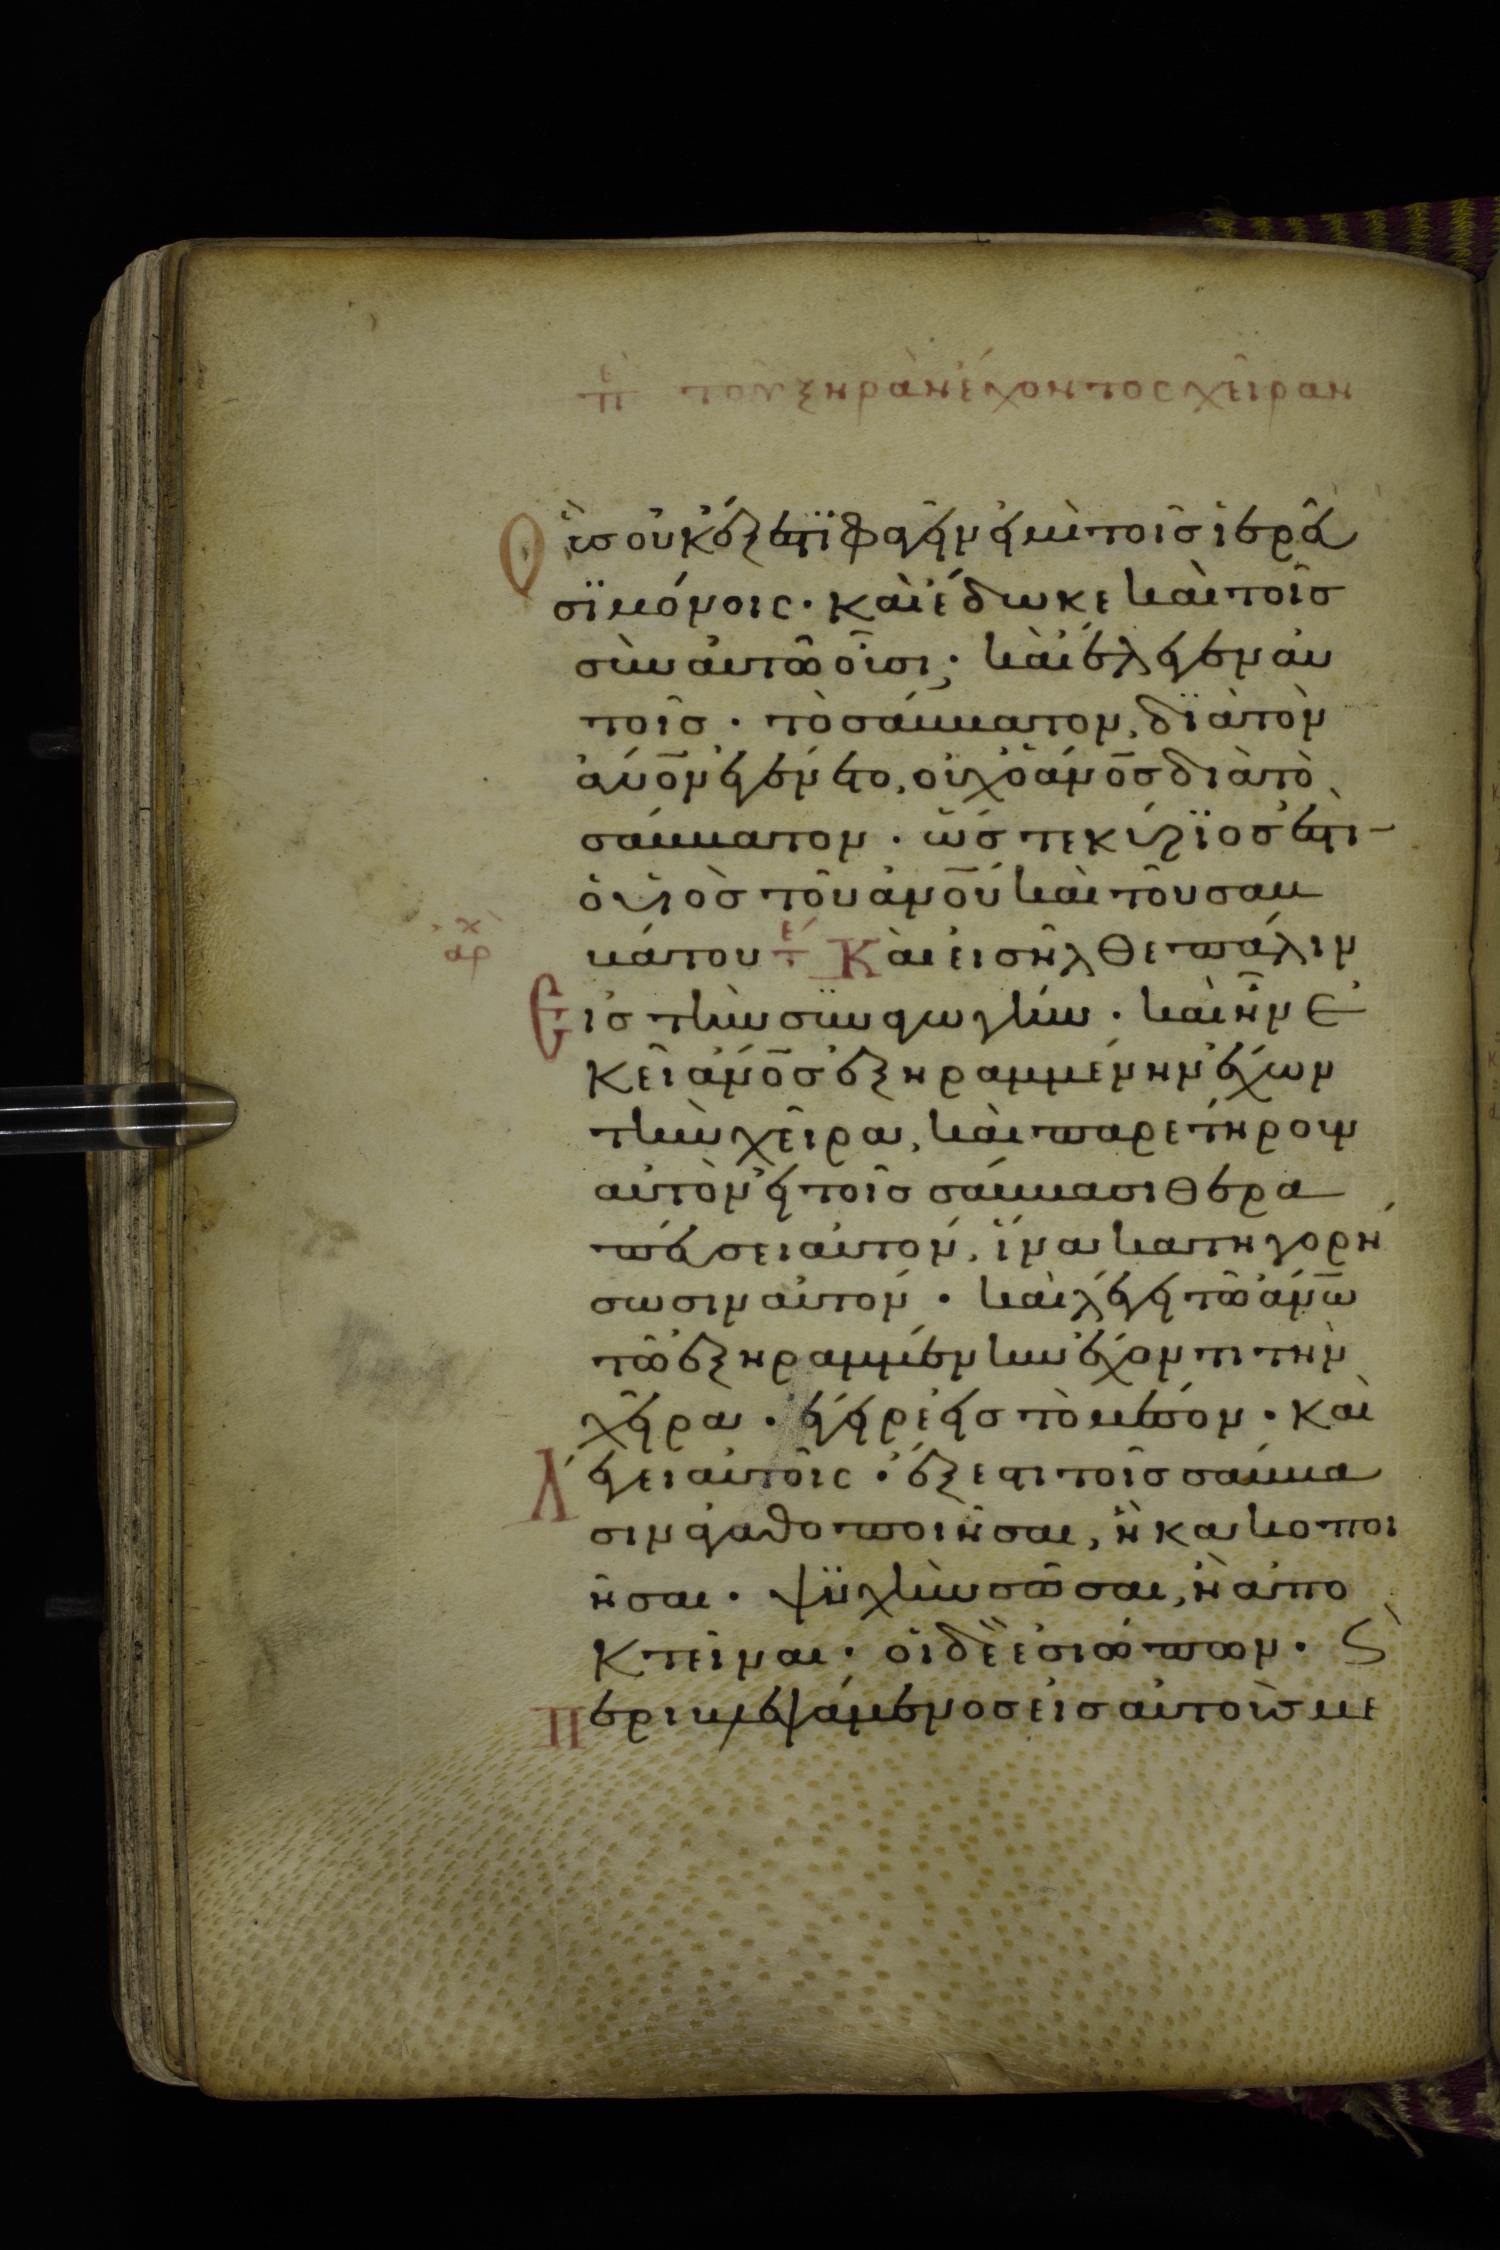 πε τοῦ ξηρὰν ἔχοντος χεῖραν
Οὓς οὐκ ἔξεστϊ φαγεῖν εἰ μὴ τοῖς ἱερεῦ
σϊ μόνοις· καὶ ἔδωκε καὶ τοῖς
σὺν αὐτῶ οὖσι; καὶ ἔλεγεν αὐ
τοῖς· τὸ σάββατον, δϊὰ τὸν
ἄνο̅ν ἐγένετο, οὐχ ὁ ἄνο̅ς διὰ τὸ
σάββατον· ὥστε κύριός ἐστι
ὁ υἱὸς τοῦ ἀνο̅ύ καὶ τοῦ σαβ
βάτου τε Καὶ εἰσῆλθε πάλιν
ἀρχ
Εἰς τὴν συναγωγήν· καὶ ἦν ἐ
κεῖ ἄνο̅ς ἐξηραμμένην ἔχων
τὴν χεῖρα, καὶ παρετήρουν
αὐτὸν εἰ τοῖς σάββασι θερα
πεύσει αὐτόν, ἵνα κατηγορή
σωσιν αὐτόν· καὶ λέγει τῶ ἀνω̅
τῶ ἐξηραμμένην ἔχοντι τὴν
χεῖρα· ἔγειρε εἰς τὸ μέσον· καὶ
Λέγει αὐτοῖς· ἔξεστι τοῖς σάββα
σιν ἀγαθοποιῆσαι, ἢ κακοποι
ῆσαι· ψϋχὴν σῶσαι, ἢ ἀπο
κτεῖναι· οἱ δὲ ἐσιώπων· Ϛ
Περιβλεψάμενος εἰς αὐτοὺς με